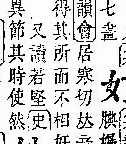 七畫
韻會居寒切
得其所而不相奸
又讀若堅史
異節其時使然